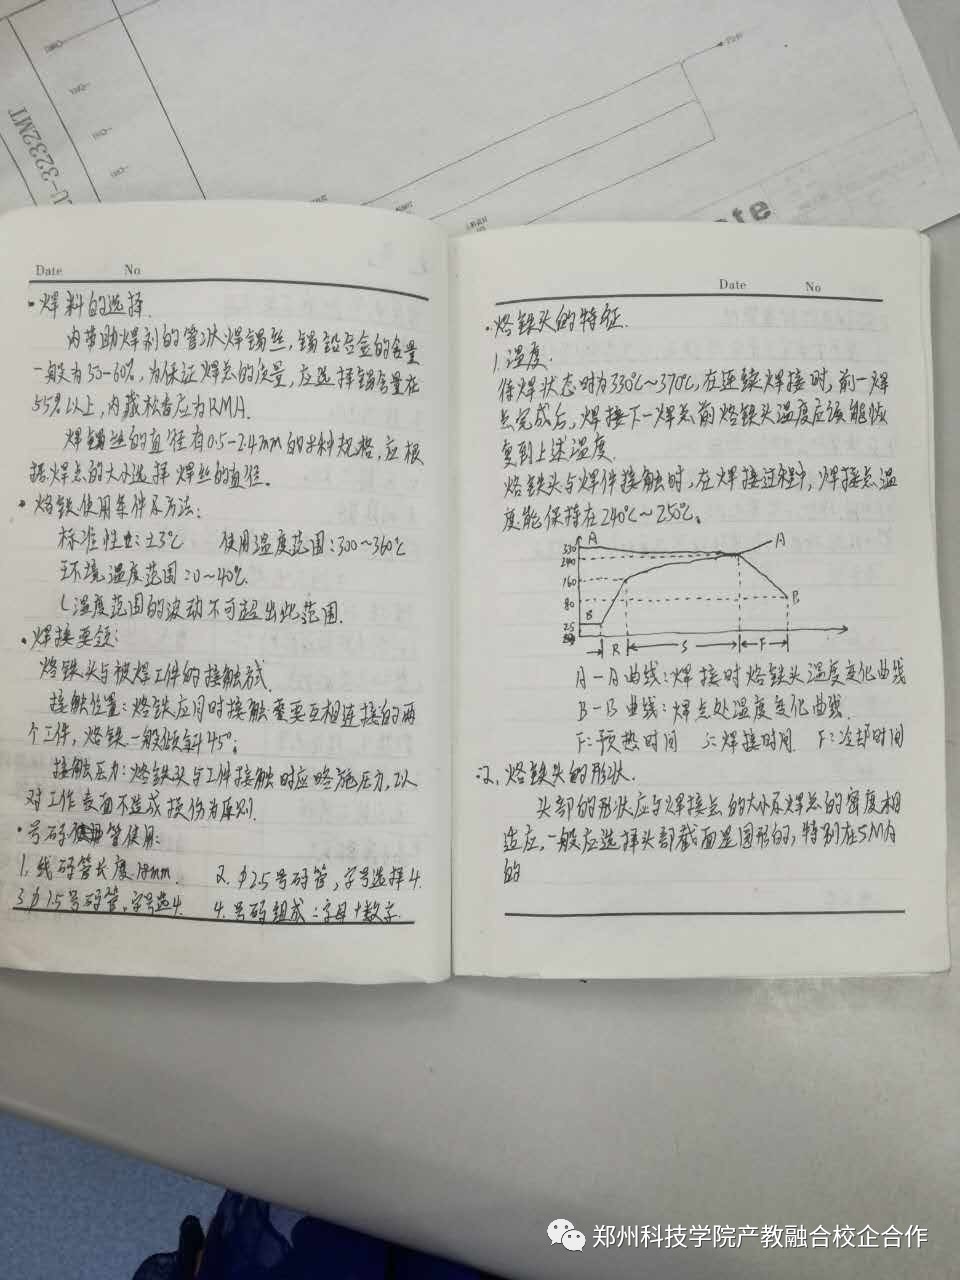 U-3232MT
Date No
·焊料的选择.
内带助焊剂的管状焊锡丝,锡铅合金的含量
一般为50-60%,为保证焊点的质量,应选择锡含量在
55%以上,内藏松香应为RMA.
焊锡丝的直径有0.5-2.4mm的 规格,应根
据焊点的大小选择焊丝的直径。
·烙铁使用条件及方法:
标准性 :±3℃ 使用温度范围:300~360℃
环境温度范围:0~40℃.
(温度范围的波动不可超出此范围.
·焊接要领:
烙铁头与被焊工件的接触方式.
接触位置:烙铁应同时接触 要互相连接的两
个工件,烙铁一般倾斜45°;
接触压力:烙铁头与工件接触时应略施压力,以
对工作表面不造成损伤为原则.
·号码 管使用:
1.线码管长度18mm. 2.φ2.5号码管,字号选择4.
3.φ1.5号码管,字号选4. 4.号码组成:字母+数字.
Date No
·烙铁头的特征.
1.温度.
待焊状态时为330℃~370℃,在连续焊接时,前一焊
点完成后,焊接下一焊点前烙铁头温度应该能恢
复到上述温度.
烙铁头与焊件接触时,在焊接过程中,焊接点温
度能保持在240℃~250℃。
A A
330
240
160
80 B
B
25
R S F
A-A曲线:焊接时烙铁头温度变化曲线
B-B曲线:焊点处温度变化曲线.
F:预热时间 S:焊接时间 F:冷却时间
2.烙铁头的形状.
头部的形状应与焊接点的大小及焊点的密度相
适应,一般应选择头部截面是圆形的,特别在SMA
的
郑州科技学院产教融合校企合作